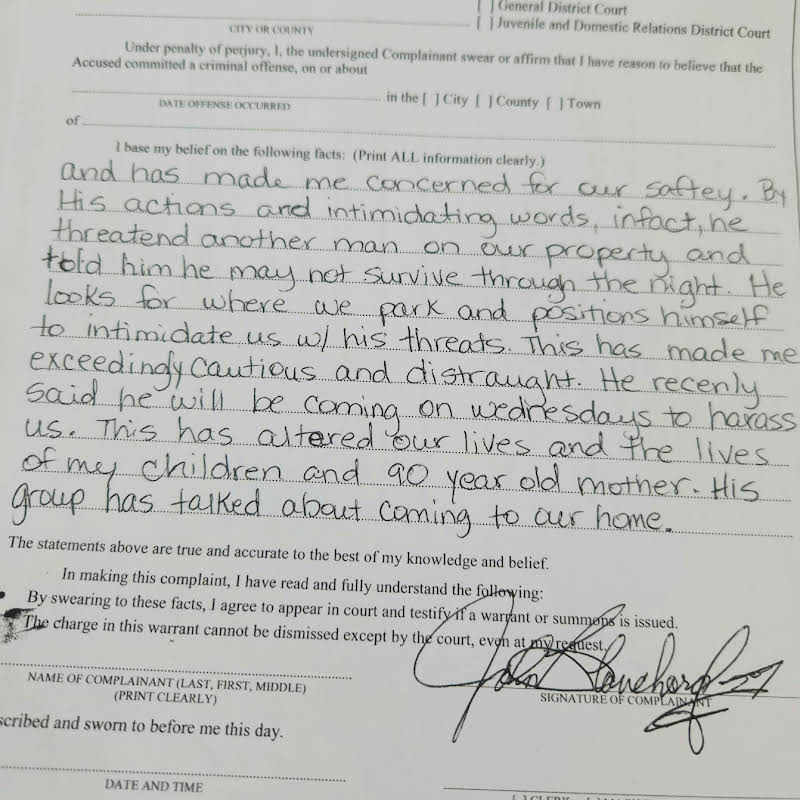 [ ] General District Court
[ ] Juvenile and Domestic Relations District Court
CITY OR COUNTY
Under penalty of perjury, I, the undersigned Complainant swear or affirm that I have reason to believe that the
Accused committed a criminal offense, on or about
in the [ ] City [ ] County [ ] Town
DATE OFFENSE OCCURRED
of
I base my belief on the following facts: (Print ALL information clearly.)
and has made me concerned for our saftey. By
His actions and intimidating words, infact, he
threatend another man on our property and
told him he may not survive through the night. He
looks for where we park and positions himself
to intimidate us w/ his threats. This has made me
exceedingly cautious and distraught. He recenly
said he will be coming on wednesdays to harass
us. This has altered our lives and the lives
of my children and 90 year old mother. His
group has talked about coming to our home.
The statements above are true and accurate to the best of my knowledge and belief.
In making this complaint, I have read and fully understand the following:
By swearing to these facts, I agree to appear in court and testify if a warrant or summons is issued.
The charge in this warrant cannot be dismissed except by the court, even at my request.
John
NAME OF COMPLAINANT (LAST, FIRST, MIDDLE)
(PRINT CLEARLY)
SIGNATURE OF COMPLAINANT
scribed and sworn to before me this day.
DATE AND TIME